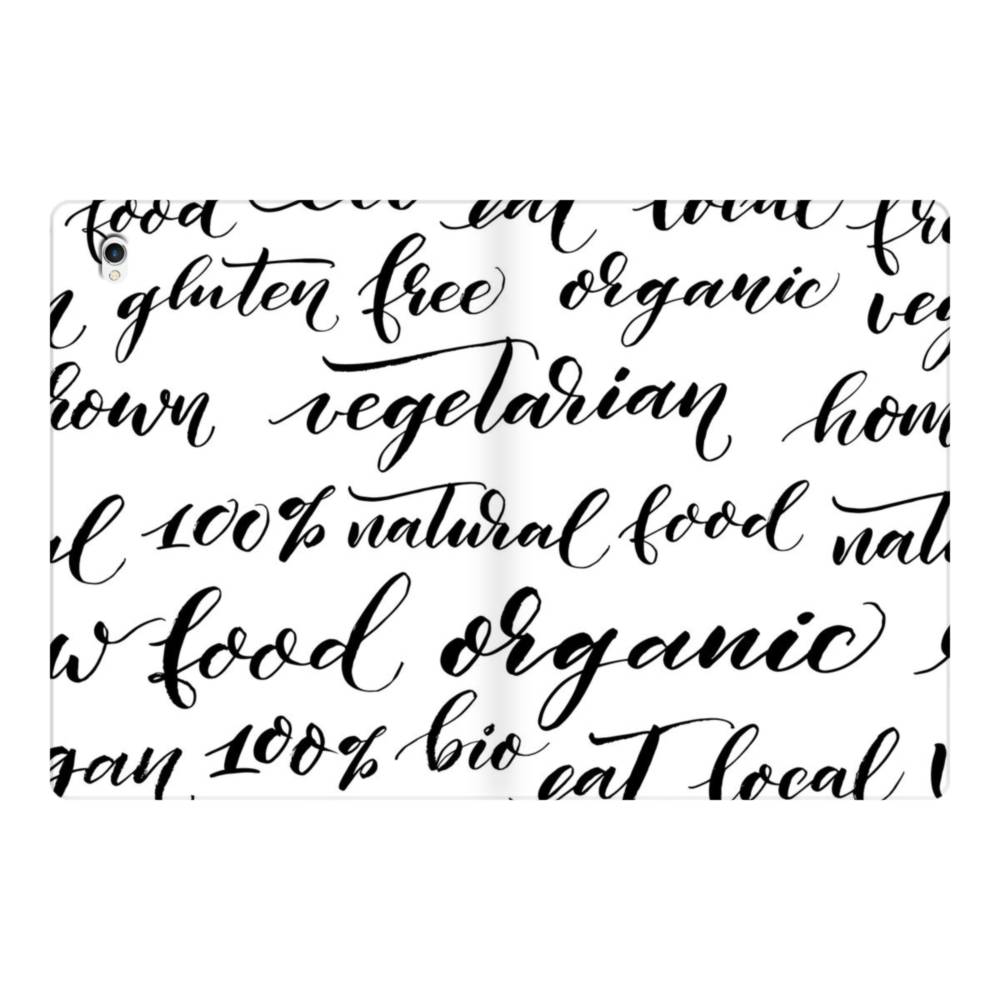 food eat local
gluten free organic veg
vegetarian hom
100% natural food natu
food organic
gan 100% bio eat local